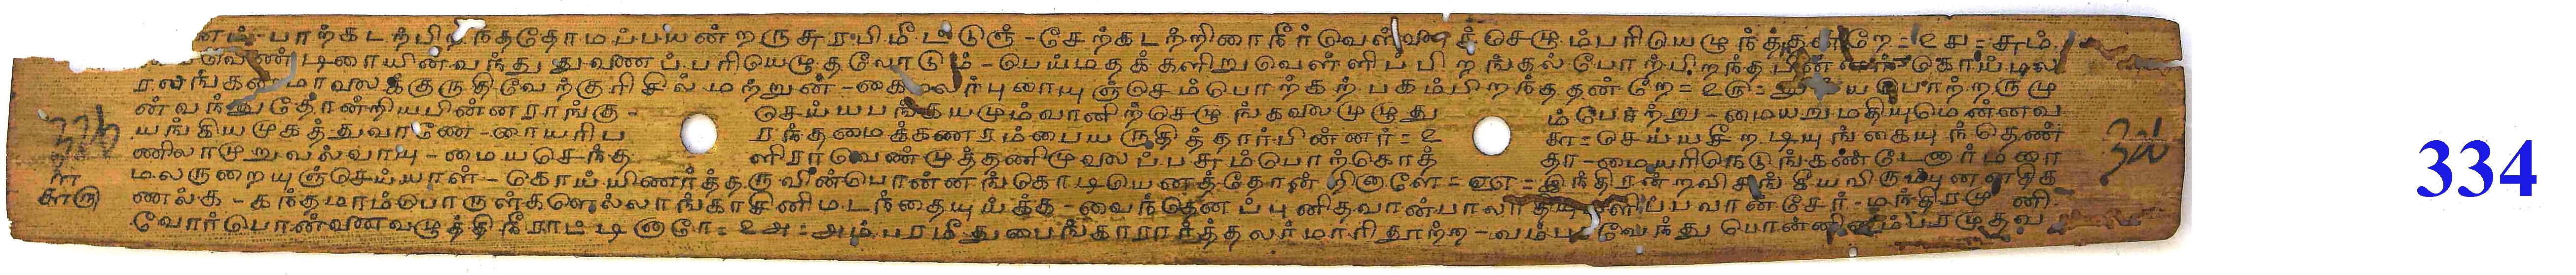 னம் - பாற்கடற்பிறந்ததோமப்பயண்றருசுரபிமீட்டுஞ் - சேற்கடற்றிரைநீர்வெள் செழும்பரியெழுந்த்தன்றே = ௨௪ = சும்
வெண்டிரையின்வந்துதுவணப்பரியெழுதலோடும் - பெய்மதக்களிறுவெள்ளிப்பிறங்கல்போற்பிறந்தபின்னர் - கொய்மல
ரலங்கன்மாலைக்குருதிவேற்குரிசில்மற்றுன் - கைமலர்புரையுஞ்செம்பொற்கற்பகம்பிறந்ததன்றே = ௨௫ = பொற்றருமு
ன்வந்துதோன்றியபின்னராங்கு - செய்யபங்கயமும்வானிற்செழுங்கலைமுழுது ம்பேற்று - மையறுமதியுமென்னவ
யங்கியமுகத்துவாணே - ரையரிப ரந்தமைக்கணரம்பையருதித்தார்பின்னர் = ௨ ௬ = செய்யசீறடியுங்கையுந்தெண்
ணிலாமுறுவல்வாயு - மையசெந்த ளிரர்வெண்முத்தணிமுலைப்பசும்பொற்கொத் தர - மையரிநெடுங்கண்டேனார்மரை
மலருறையுஞ்செய்யாள் - கொய்யிணர்த்தருவின்பொன்னங்கொடியெனத்தோன்றினாளே = ௨௭ = இந்திரன்றவிசங்கீயவிரும்புனனதிக
ணல்க - கந்தமாம்பொருள்களெல்லாங்காசினிமடந்தையுய்க்க - வைந்தெனப்புனிதவான்பாலா ளிப்பவான்சேர் - மந்திரமு னி
வோர்பொன்வணவழுத்திநீராட்டினாரே = ௨௮ = அம்பரமீதுபைங்காரார்த்தலர்மாரிதூற்ற - வேந்து பொன்னி
334